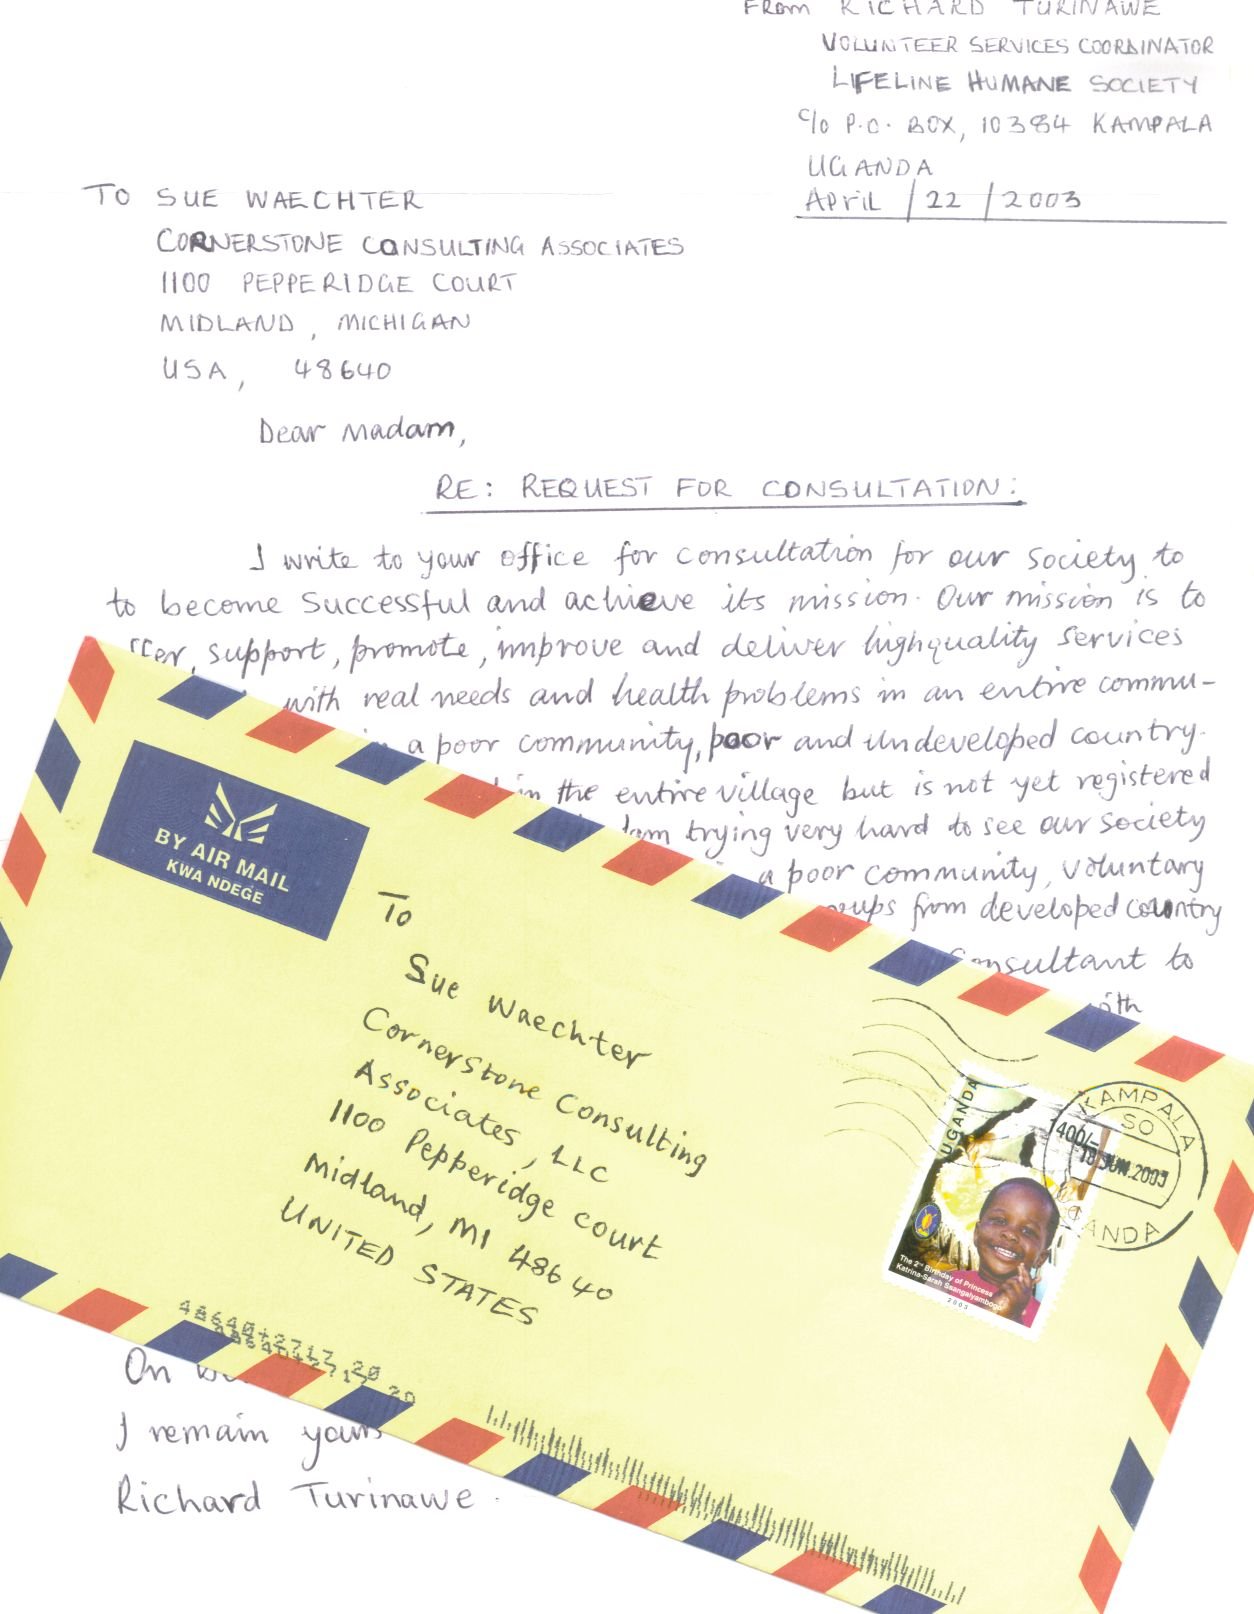 From RICHARD TURINAWE
VOLUNTEER SERVICES COORDINATOR
LIFELINE HUMANE SOCIETY
c/o P.O. BOX, 10384 KAMPALA
UGANDA
April / 22 / 2003
TO SUE WAECHTER
CORNERSTONE CONSULTING ASSOCIATES
1100 PEPPERIDGE COURT
MIDLAND, MICHIGAN
USA, 48640
Dear Madam,
RE: REQUEST FOR CONSULTATION:
I write to your office for consultation for our society to
to become successful and achieve its mission. Our mission is to
support, promote, improve and deliver highquality services
with real needs and health problems in an entire commu-
a poor community, poor and undeveloped country.
in the entire village but is not yet registered
I am trying very hard to see our society
a poor community, voluntary
from developed country
consultant to
BY AIR MAIL
KWA NDEGE
To
Sue Waechter
Cornerstone Consulting
Associates, LLC
1100 Pepperidge court
Midland, MI 48640
UNITED STATES
UGANDA
1400/-
The 2nd Birthday of Princess
Katrina-Sarah Ssangalyambogo
2003
KAMPALA
SO
18 JUN. 2003
UGANDA
48640+2717 20
48640+2717 20
On
I remain yours
Richard Turinawe.